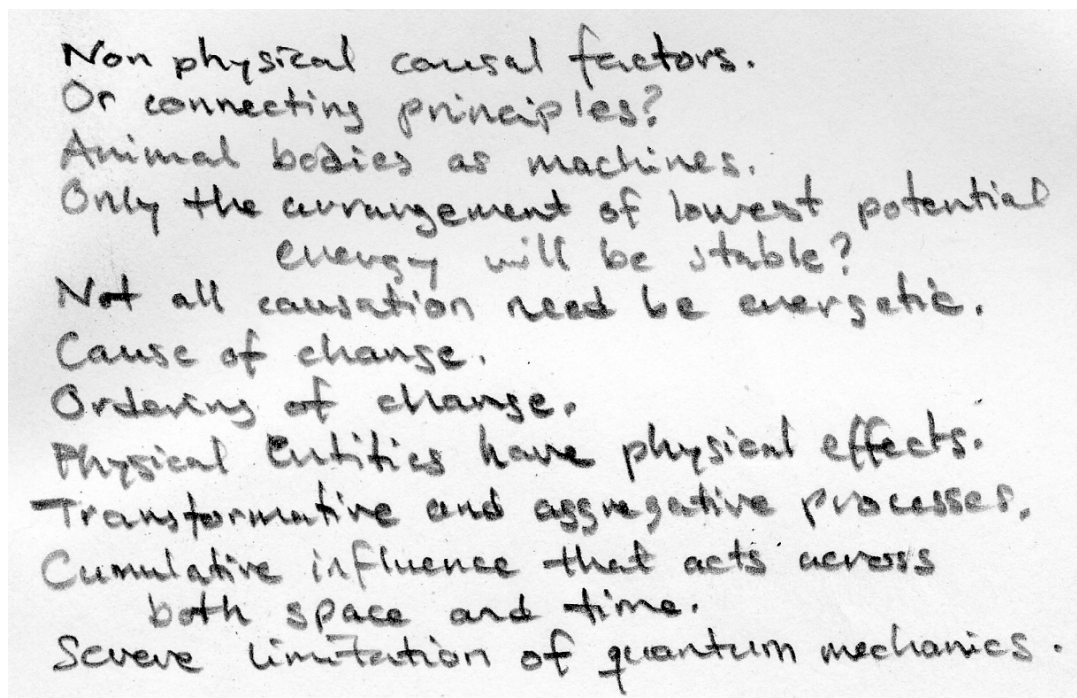 Non physical causal factors.
Or connecting principles?
Animal bodies as machines.
Only the arrangement of lowest potential
energy will be stable?
Not all causation need be energetic.
Cause of change.
Ordering of change.
Physical Entities have physical effects.
Transformative and aggregative processes.
Cumulative influence that acts across
both space and time.
Severe limitation of quantum mechanics.